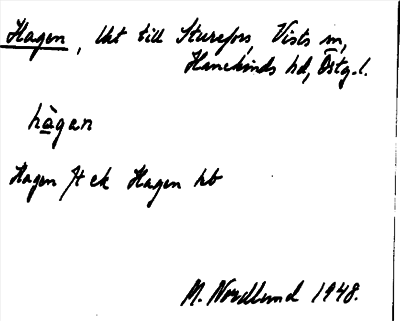 Hagen, lht till Sturefors, Vists sn,
Hanekinds hd, Östg. l.
hàgan
Hagen Jt ek Hagen ht
M. Nordlund 1948.